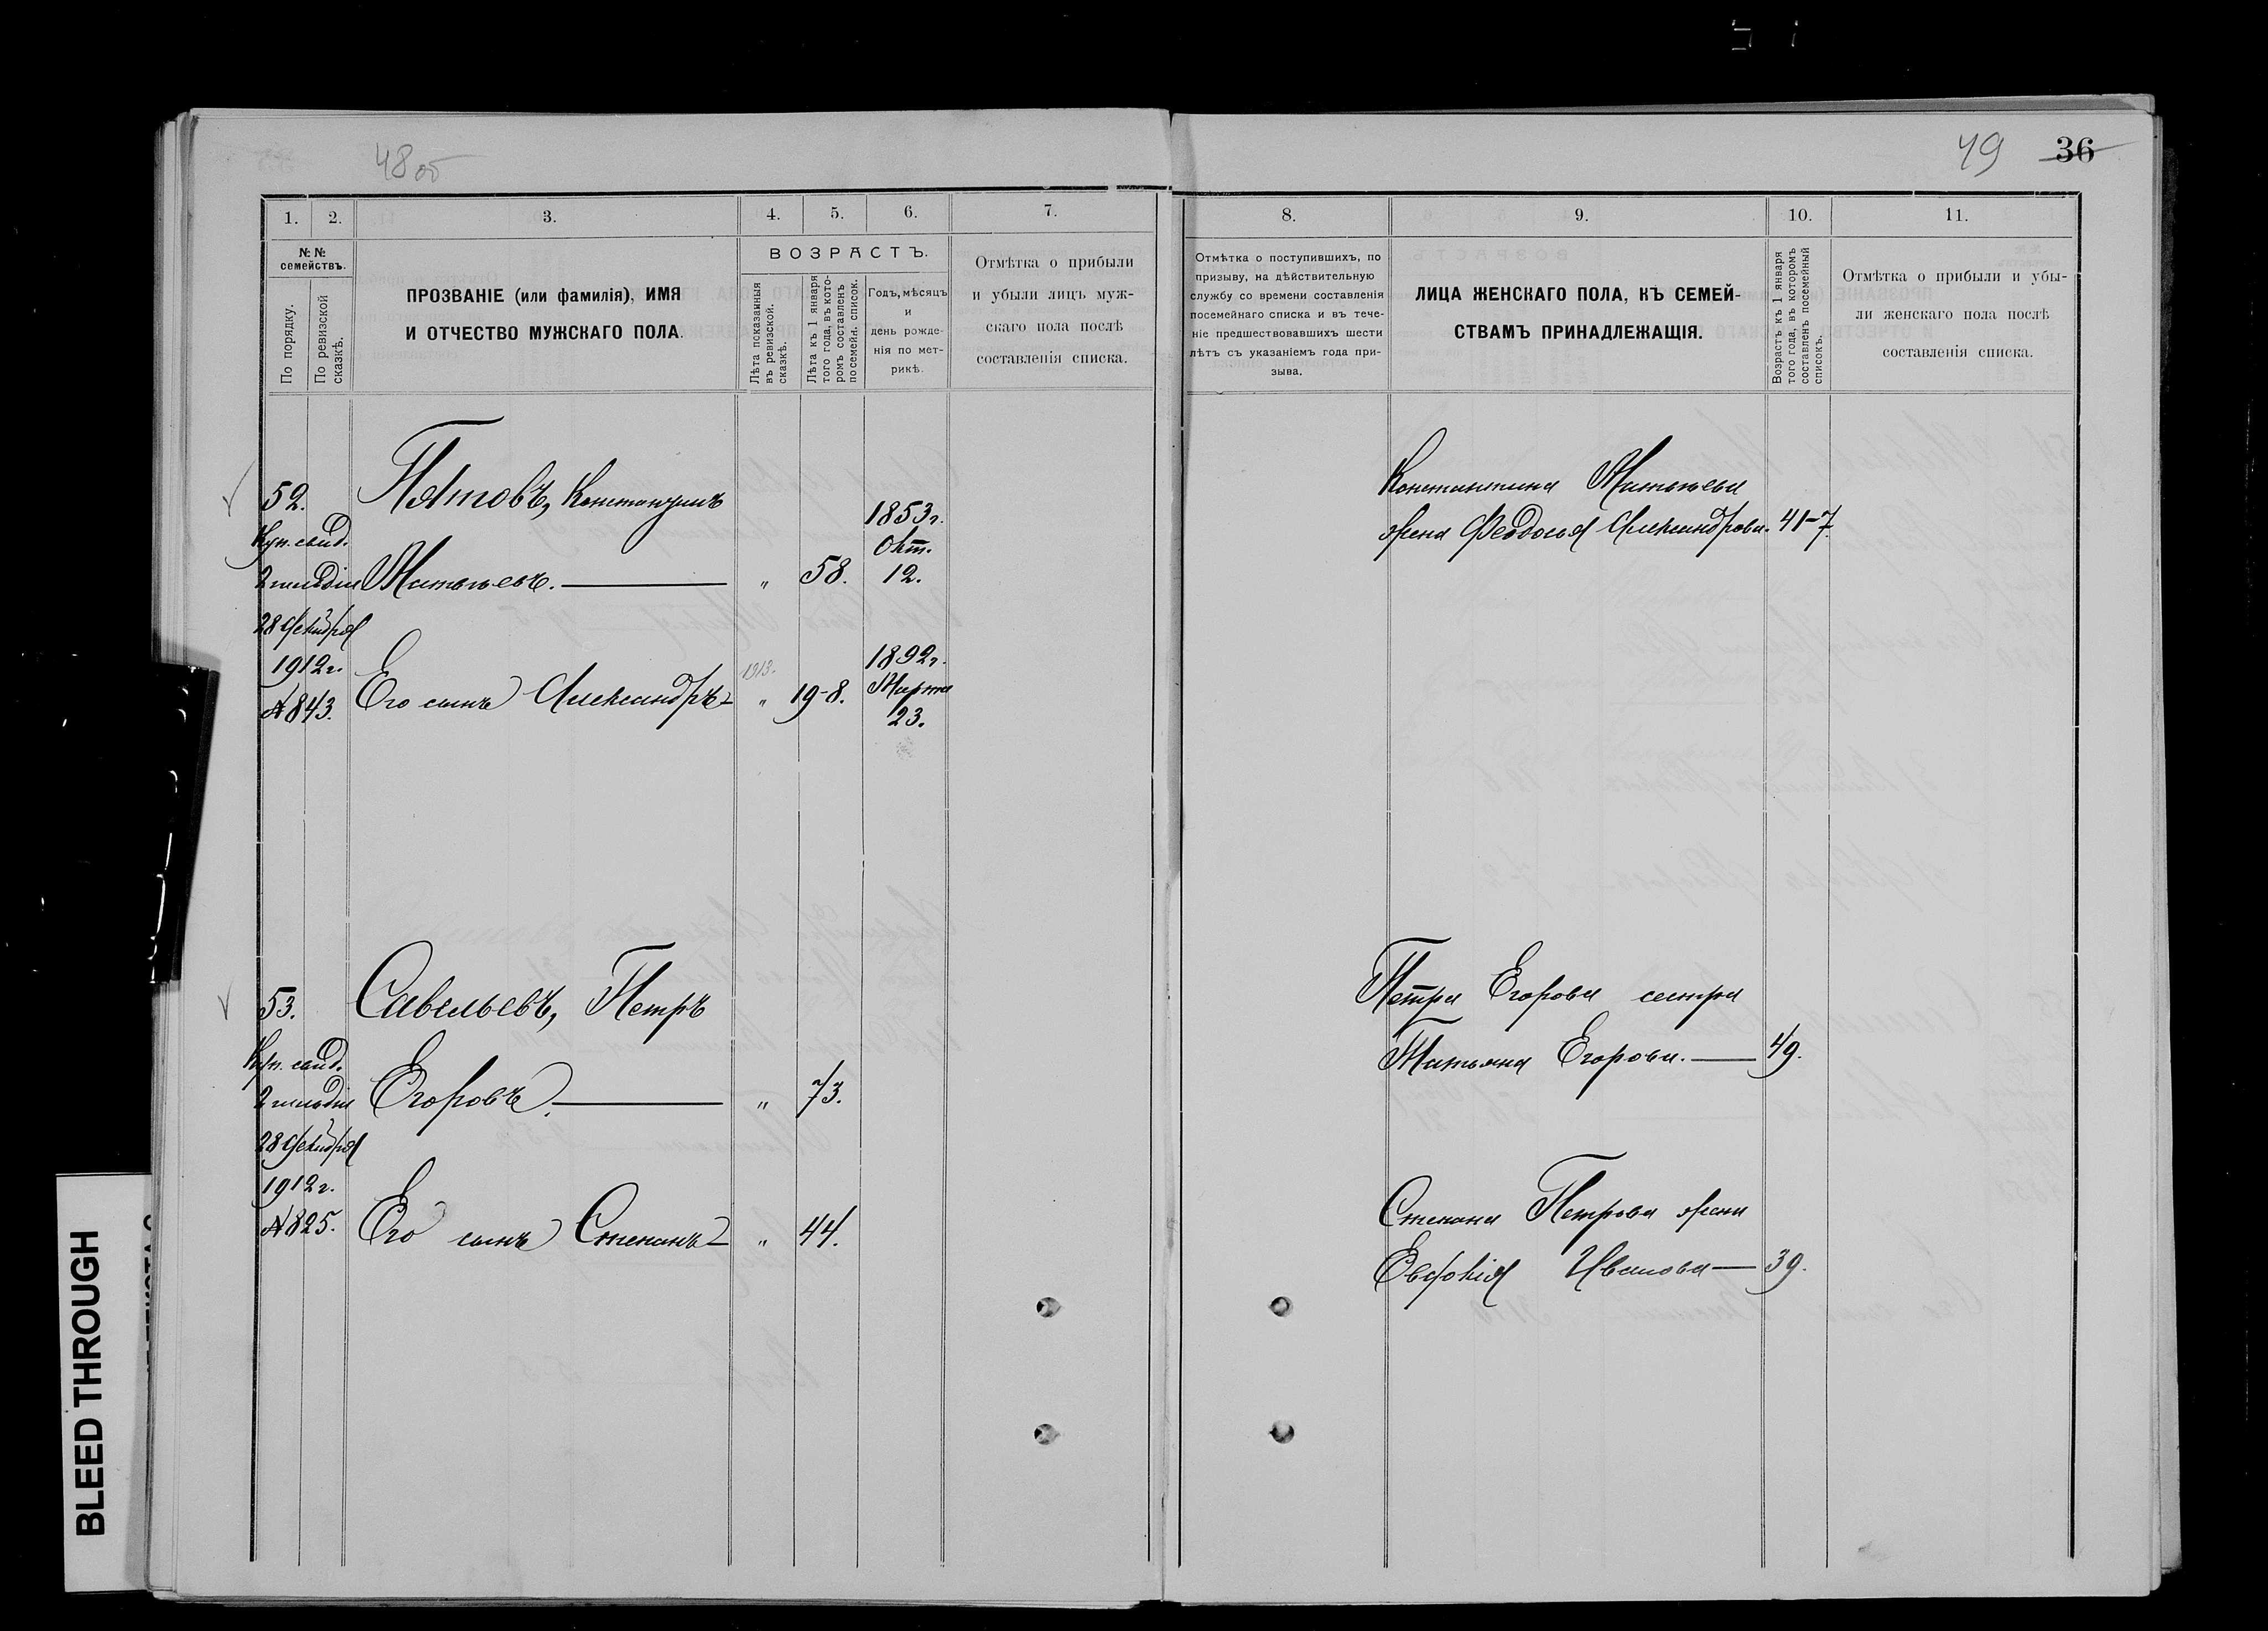 48 об
49 36
1. 2. 3. 4. 5. 6. 7.
№ №
семействъ.
По порядку.
По ревизской
сказкѣ.
ПРОЗВАНІЕ (или фамилія), ИМЯ
И ОТЧЕСТВО МУЖСКАГО ПОЛА.
ВОЗРАСТЪ.
Лѣта показанныя
въ ревизской.
сказкѣ.
Лѣта къ 1 января
того года, въ кото-
ромъ составленъ
посемейн. список.
Годъ, мѣсяцъ
и
день рожде-
нія по мет-
рикѣ.
Отмѣтка о прибыли
и убыли лицъ муж-
скаго пола послѣ
составленія списка.
52.
Куп. свид.
2 гильдіи
28 Декабря
1912 г.
№ 843.
Пятовъ, Константинъ
Матвѣевъ. — „ 58.
1853 г.
Окт.
12.
Его сынъ Александръ — „ 19-8.
1913.
1892 г.
Марта
23.
53.
Куп. свид.
2 гильдіи
28 Декабря
1912 г.
№ 825.
Савельевъ, Петръ
Егоровъ. — „ 73.
Его сынъ Степанъ — „ 44.
8. 9. 10. 11.
Отмѣтка о поступившихъ, по
призыву, на дѣйствительную
службу со времени составленія
посемейнаго списка и въ тече-
ніе предшествовавшихъ шести
лѣтъ съ указаніемъ года при-
зыва.
ЛИЦА ЖЕНСКАГО ПОЛА, КЪ СЕМЕЙ-
СТВАМЪ ПРИНАДЛЕЖАЩІЯ.
Возрастъ къ 1 января
того года, въ которомъ
составленъ посемейный
списокъ.
Отмѣтка о прибыли и убы-
ли женскаго пола послѣ
составленія списка.
Константина Матвѣева
жена Феодосья Александрова. 41-7.
Петра Егорова сестра
Татьяна Егорова. — 49.
Степана Петрова жена
Евдокія Иванова — 39.
BLEED THROUGH